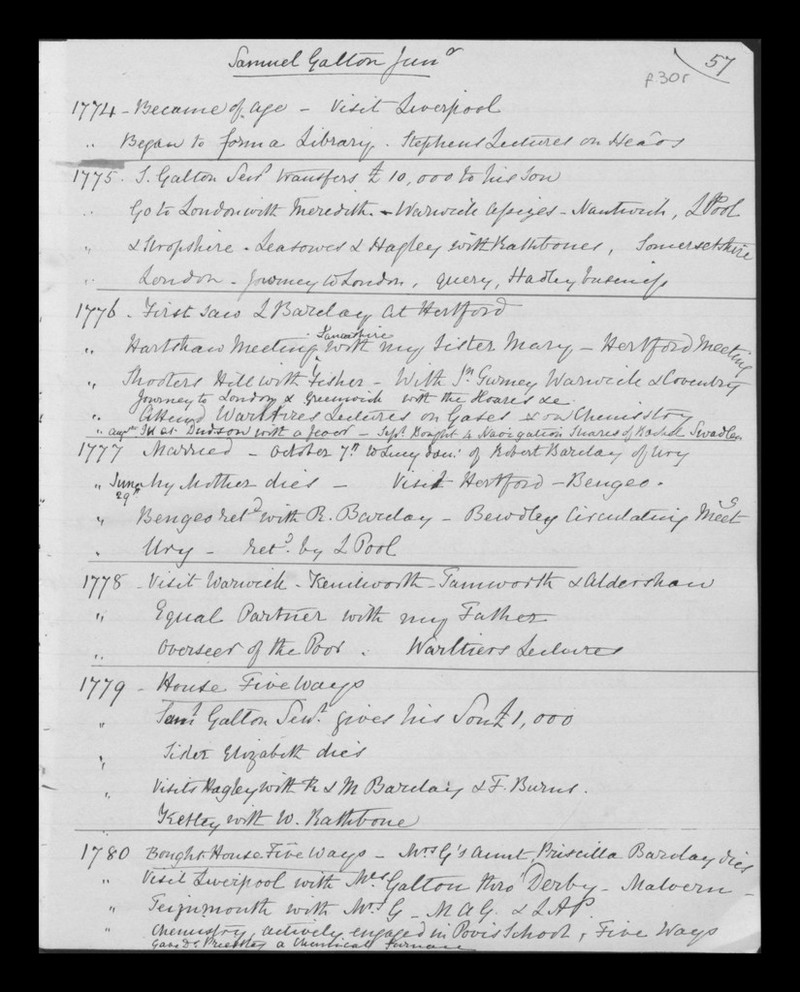 Samuel Galton Junr
57
f 30r
1774 - Became of age - Visit Liverpool
" Began to form a Library. Stephens Lectures on Heads
1775. S. Galton Senr transfers £10,000 to his Son
" Go to London with Meredith. - Warwick Assizes - Nantwich, LPool
" Shropshire - Leasowes & Hagley with Rathbones, Somersetshire
" London - Journey to London, query, Hadley business
1776. First saw L Barclay at Hertford
Lancashire
" Hartshaw Meeting with my Sister Mary - Hertford Meeting
" Shooters Hill with Fisher - With Jn Gurney Warwick & Coventry
Journey to London & Greenwich with the Hoares &c
" Attend Warltires Lectures on Gases & on Chemistry
" at Dudson with a fever - Sept. Bought 4 Navigation Shares of Rachel Swadley
1777 Married - October 7th to Lucy dau: of Robert Barclay of Ury
" June 29th My Mother dies - Visit Hertford - Bengeo.
" Bengeo retd with R. Barclay - Bewdley Circulating Meetg
" Ury - retd. by L Pool
1778 - Visit Warwick - Kenilworth - Tamworth & Aldershaw
" Equal Partner with my Father
" Overseer of the Poor. Warltiers Lectures
1779 - House Five Ways
" Saml Galton Senr. gives his Son £1,000
" Sister Elizabeth dies
" Visits Hagley with R & M Barclay & F. Burns.
Ketley with W. Rathbone
1780 Bought House Five Ways - Mrs G's aunt, Priscilla Barclay dies
" Visit Liverpool with Mrs Galton thro' Derby - Malvern -
" Teignmouth with Mrs G - M A G. & L A P.
" Chemistry, actively engaged in Povis School, Five Ways
Gave Dr Priestley a Chemical Furnace